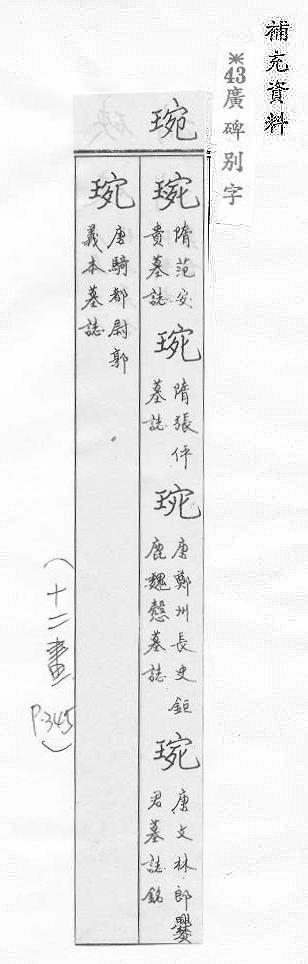 補充資料
※43廣碑别字
琬
琬 隋范安貴墓誌
琬 隋張伻墓誌
琬 唐鄭州長史鉅鹿魏愨墓誌
琬 唐文林郎爨君墓誌銘
琬 唐騎都尉郭義本墓誌
(十二畫 P.345)